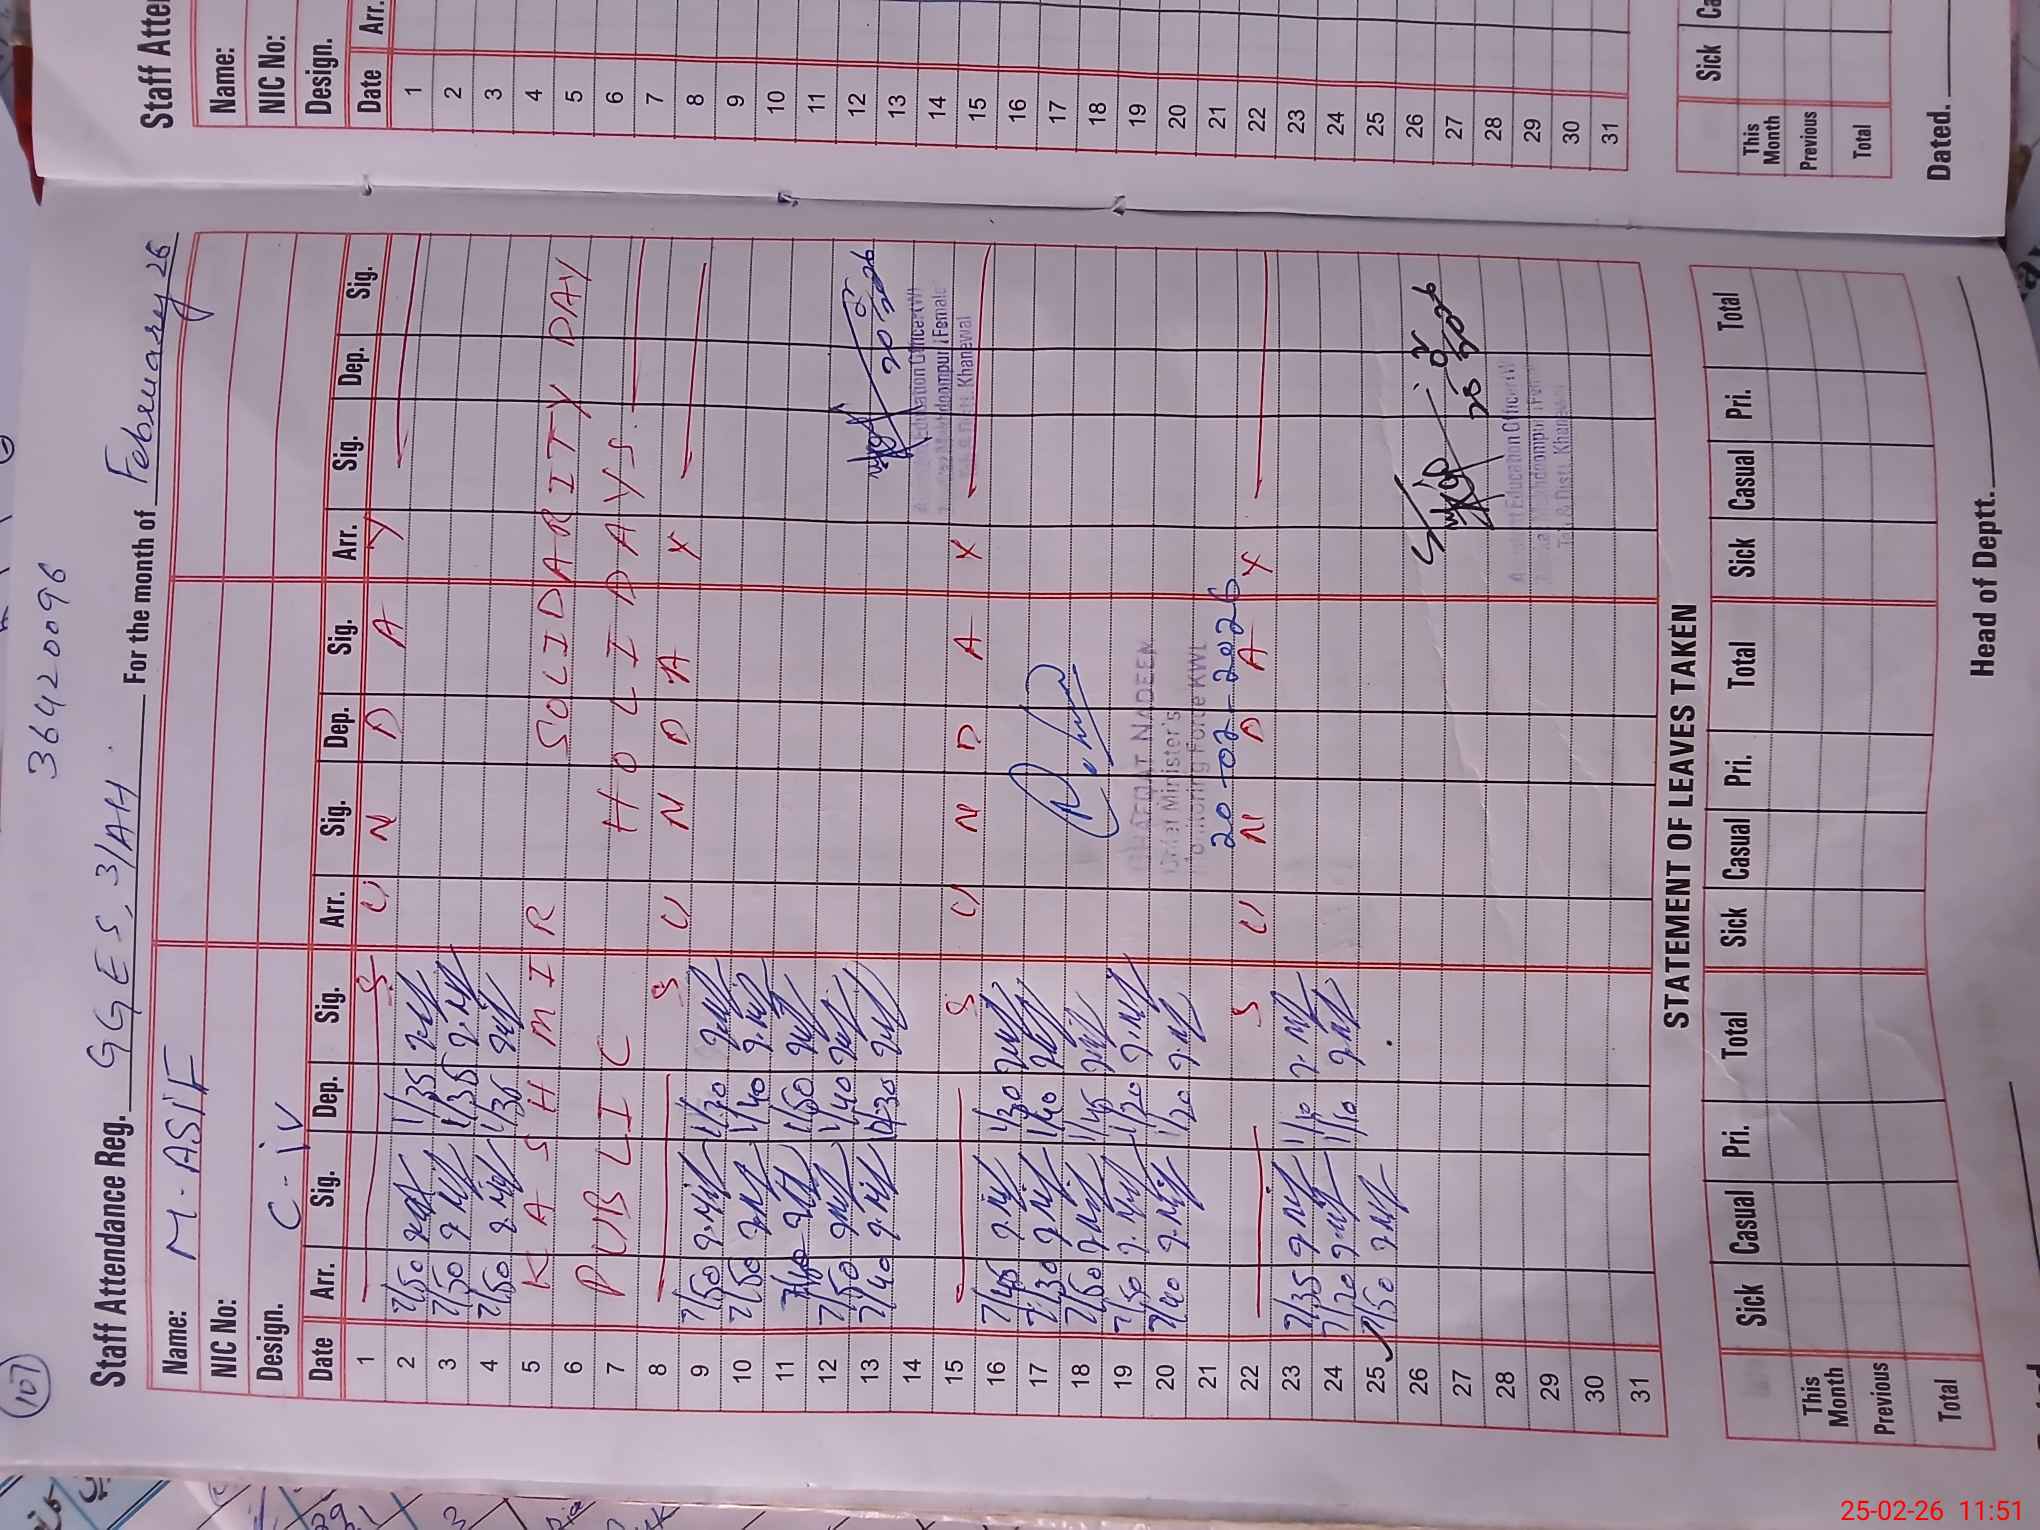 107
36420096
Staff Attendance Reg. GGES, 3/AH. For the month of February 26
Name: M-ASIF
NIC No:
Design. C-iv
Date Arr. Sig. Dep. Sig. Arr. Sig. Dep. Sig. Arr. Sig. Dep. Sig.
1 S U N D A Y
2 7/50 1/35
3 7/50 1/35
4 7/50 1/35
5 KASHMIR SOLIDARITY DAY
6 PUBLIC HOLIDAYS.
7
8 S U N D A Y
9 7/50 1/30
10 7/50 1/40
11 7/40 1/50
12 7/50 1/40
13 7/40 12:30
14
15 S U N D A Y
16 7/45 1/30
17 7:30 1/40
18 7/50 1/45
19 7/50 1/20
20 7/40 1/20
21 20-02-2026
22 S U N D A Y
23 7/35 1/10
24 7/20 1/10
25 7/50
26
27
28
29
30
31
Education Officer (W)
Makhdoompur (Female
Distt. Khanewal
SHAFQAT NADEEM
Chief Minister's
Monitoring Force KWL
Education Officer (W
Makhdoompur (Fem
Distt. Khanewal
STATEMENT OF LEAVES TAKEN
Sick Casual Pri. Total Sick Casual Pri. Total Sick Casual Pri. Total
This
Month
Previous
Total
Head of Deptt.
Staff Atte
Name:
NIC No:
Design.
Date Arr.
1
2
3
4
5
6
7
8
9
10
11
12
13
14
15
16
17
18
19
20
21
22
23
24
25
26
27
28
29
30
31
Sick Ca
This
Month
Previous
Total
Dated.
25-02-26 11:51